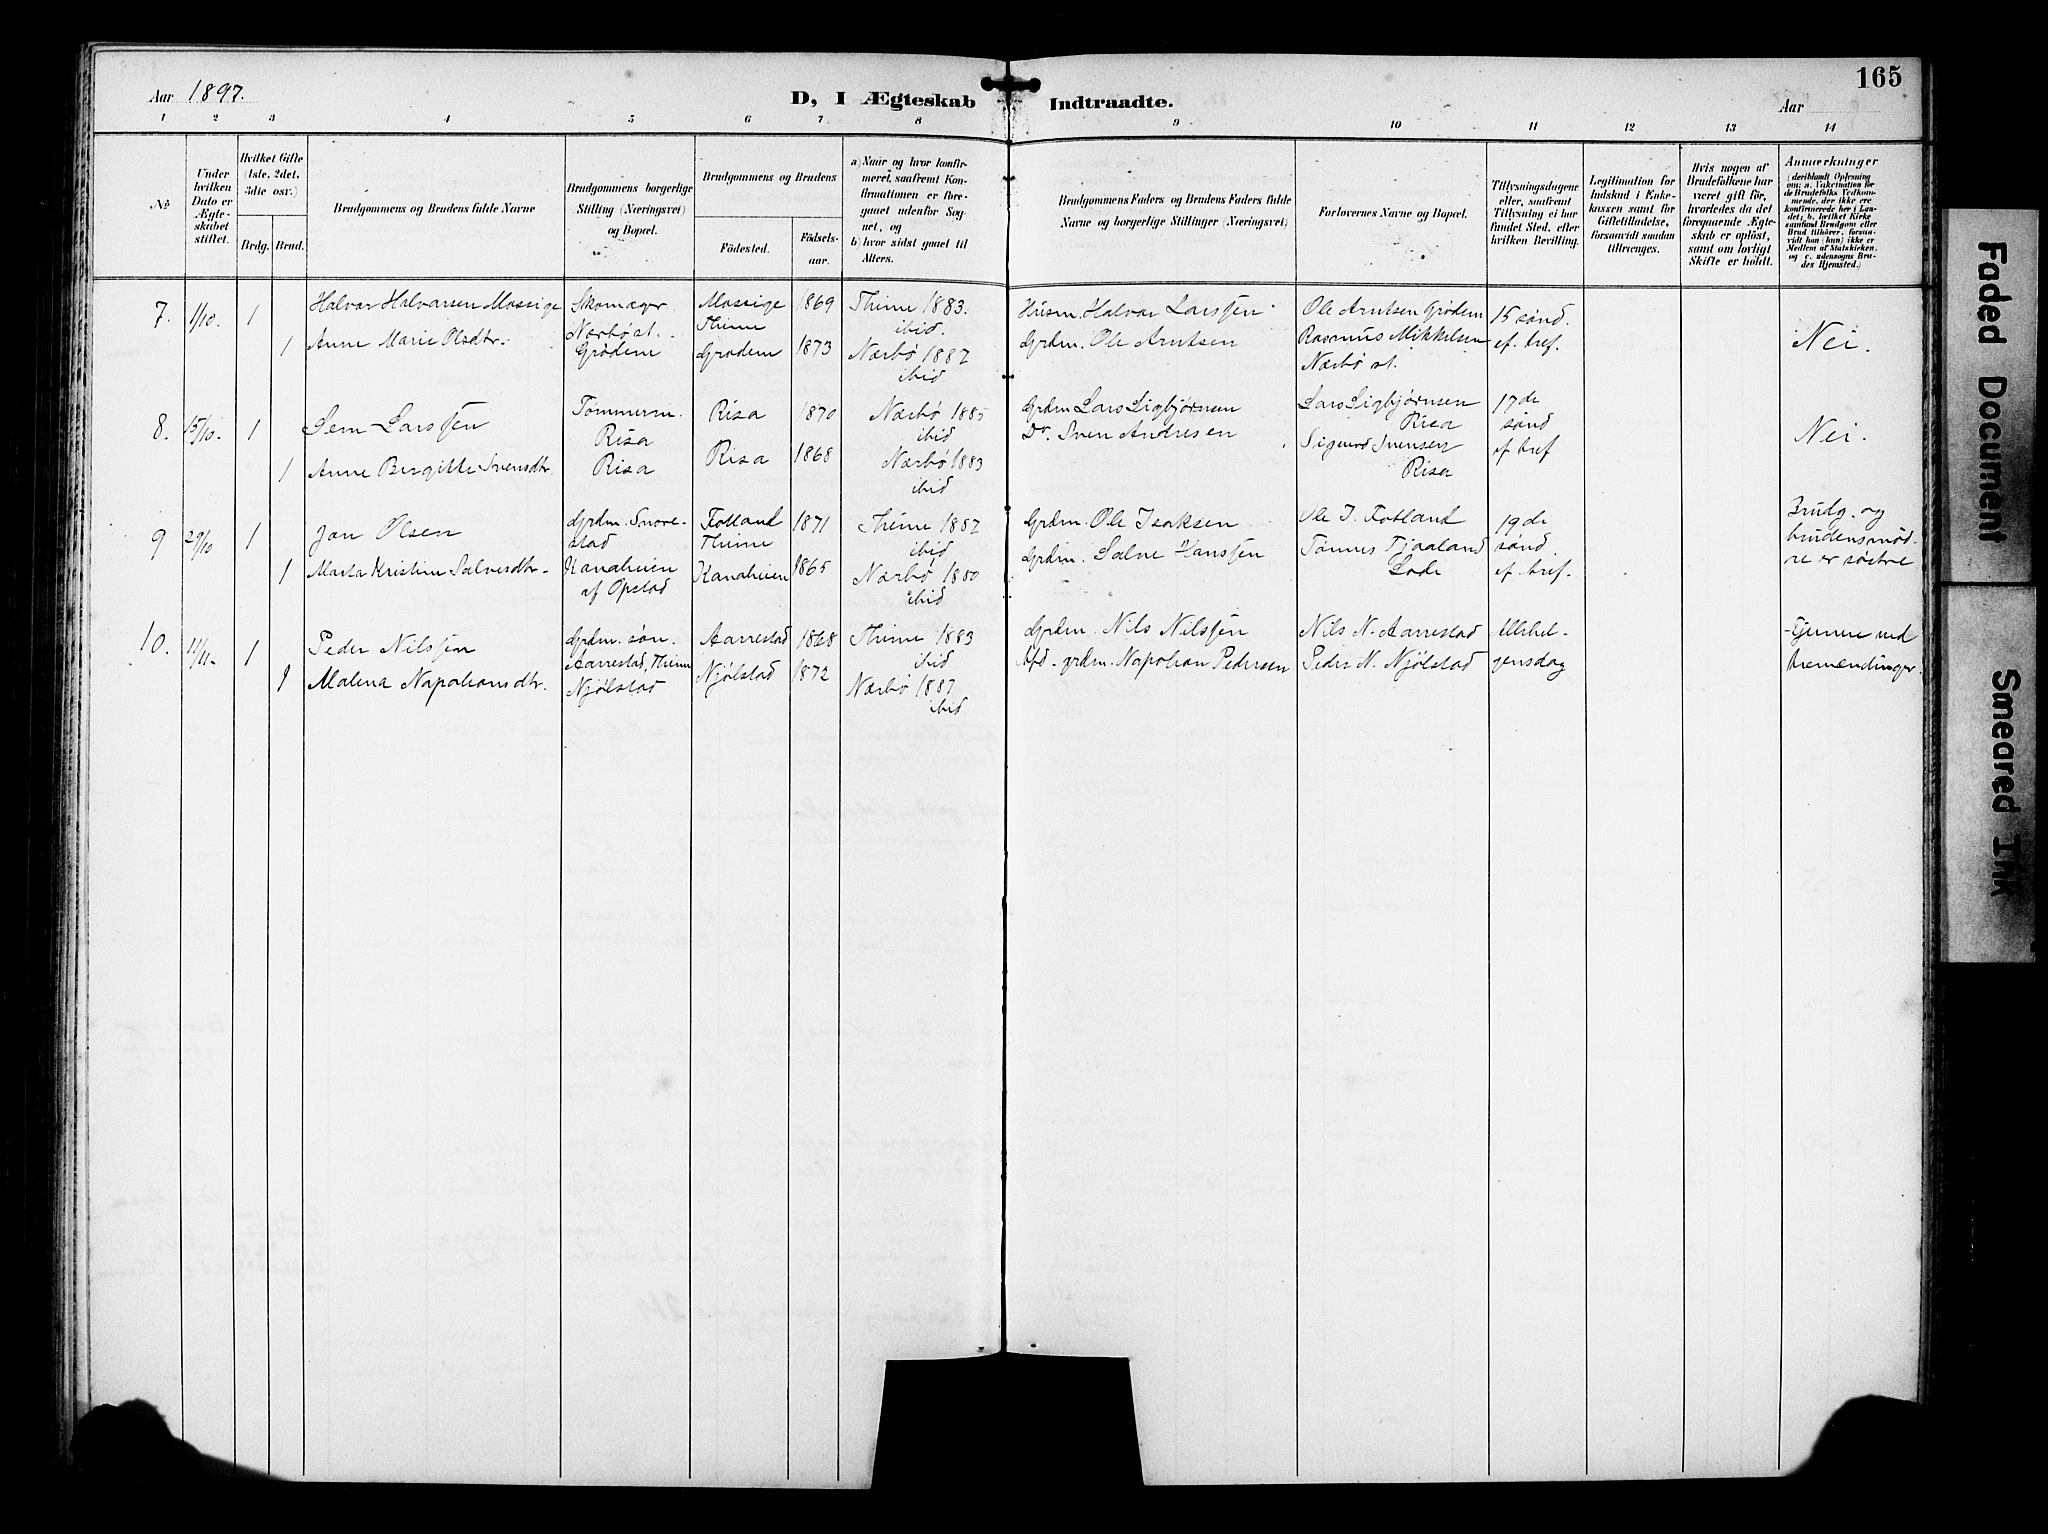 165
Aar 1897.
D, I Ægteskab Indtraadte.
Aar
1 2 3 4 5 6 7 8 9 10 11 12 13 14
No
Under hvilken Dato er Ægteskabet stiftet.
Hvilket Gifte (1ste, 2det, 3die osv.)
Brdg. Brud.
Brudgommens og Brudens fulde Navne
Brudgommens borgerlige Stilling (Næringsvei) og Bopæl.
Brudgommens og Brudens
Födested.
Födselsaar.
a) Naar og hvor konfirmeret, saafremt Konfirmationen er foregaaet udenfor Sognet, og
b) hvor sidst gaaet til Alters.
Brudgommens Faders og Brudens Faders fulde
Navne og borgerlige Stillinger (Næringsvei)
Forlovernes Navne og Bopæl.
Tillysningsdagene eller, saafremt Tillysning ei har fundet Sted, efter hvilken Bevilling.
Legitimation for Indskud i Enkekassen samt for Giftetilladelse, forsaavidt saadan tiltrænges.
Hvis nogen af Brudefolkene har været gift før, hvorledes da det foregaaende Ægteskab er opløst, samt om lovligt Skifte er holdt.
Anmærkninger
(deriblandt Oplysning om: a. Vakcination for de Brudefolks Vedkommende, der ikke ere konfirmerede her i Landet; b. hvilket Kirkesamfund Brudgom eller Brud tilhörer, forsaavidt han (hun) ikke er Medlem af Statskirken, og c. udensogns Brudes Hjemsted.)
7. 1/10. 1 Halvar Halvarsen Mossige Skomager Mossige 1869 Thime 1883. Husm. Halvar Larssen Ole Arntsen Grødem 15 sønd.
Nærbø st. Thime ibid. Rasmus Mikkelsen ef. tref. Nei.
1 Anne Marie Olsdtr. Grødem Grødem 1873 Nærbø 1887 Grdm. Ole Arntsen Nærbø st.
ibid
8. 15/10. 1 Sem Larssen Tømmerm. Risa 1870 Nærbø 1885 Grdm Lars Sigbjørnsen Lars Sigbjørnsen 17de
Risa ibid Do. Sven Andresen Risa sønd Nei.
1 Anne Birgitte Svensdtr. Risa Risa 1868 Nærbø 1883 Sigurd Svensen ef tref
ibid Risa
9 29/10 1 Jon Olsen Grdm. Fotland 1871 Thime 1887 Grdm. Ole Isaksen Ole I. Fotland 19de Brudg. og
stad Thime ibid Grdm. Salve Hanssen Tønnes Tjaaland sønd. brudens mød-
1 Marta Kristine Salvesdtr. Kanaheien Kanaheien 1865 Nærbø 1880 Lode ef. tref. re er søstre
af Opstad ibid
10. 11/11. 1 Peder Nilssen Grdm. søn. Aarrestad 1868 Thime 1883 Grdm. Nils Nilssen Nils N. Aarrestad Allehel-
Aarrestad, Thime ibid Afd. grdm. Napolion Pedersen Peder N. Njølstad gensdag
1 Malena Napolionsdtr. Njølstad Njølstad 1872 Nærbø 1887
ibid
Faded Document
Smeared Ink